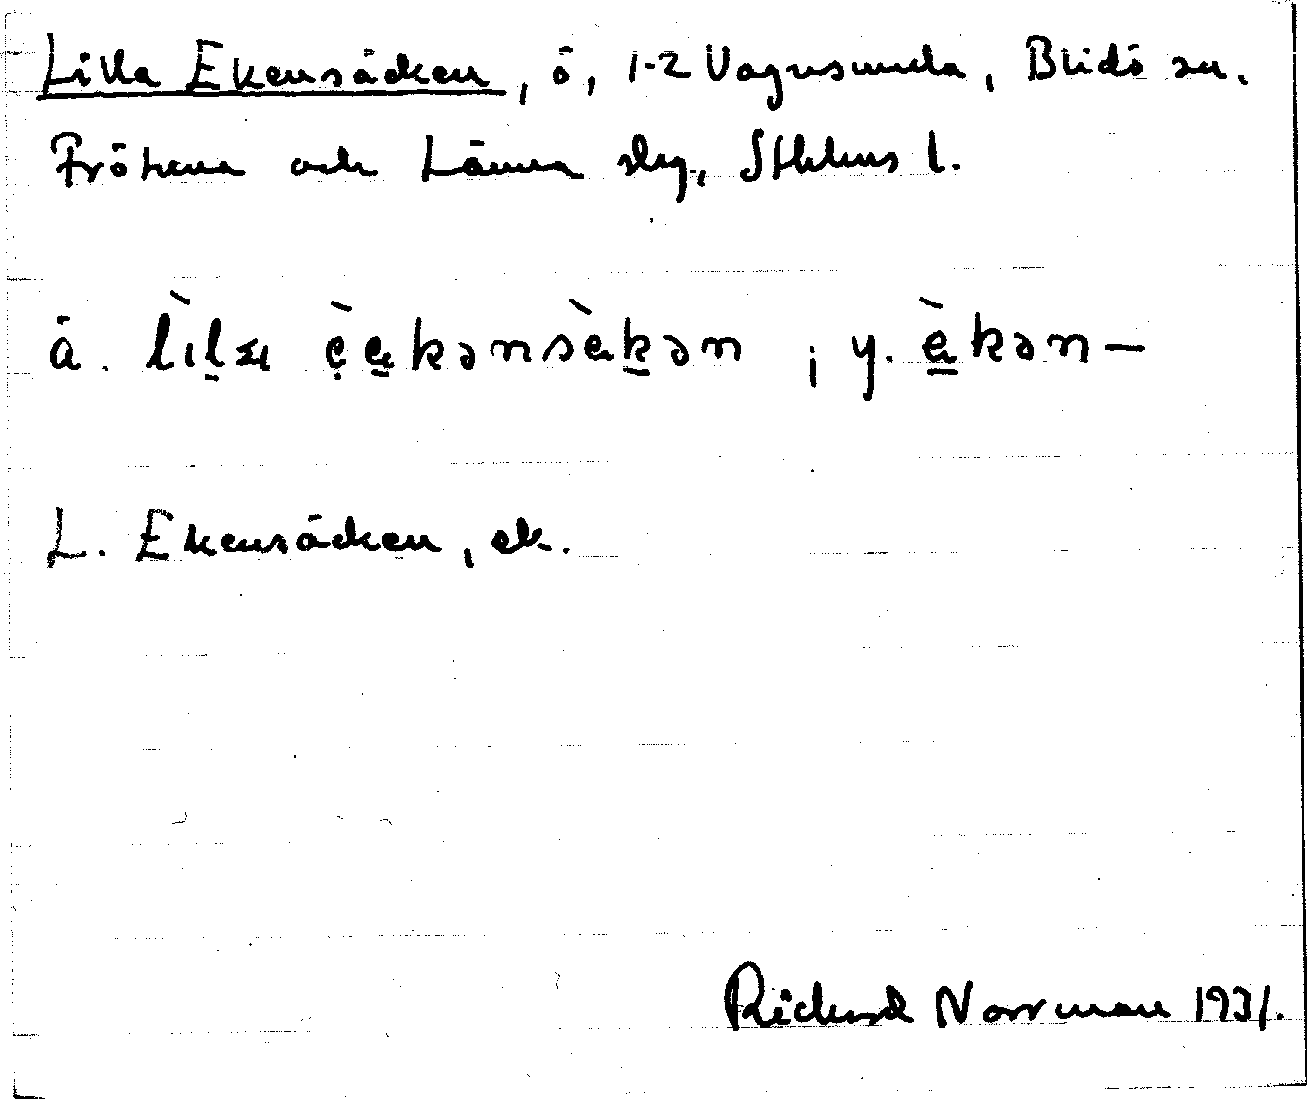 Lilla Ekensäcken, ö, 1-2 Vagnsunda, Blidö sn.
Frötuna och Länna slg, Sthlms l.
ä. lìlа èekənsèkən ; y. èkən—
L. Ekensäcken, ek.
Rickard Norrman 1931.